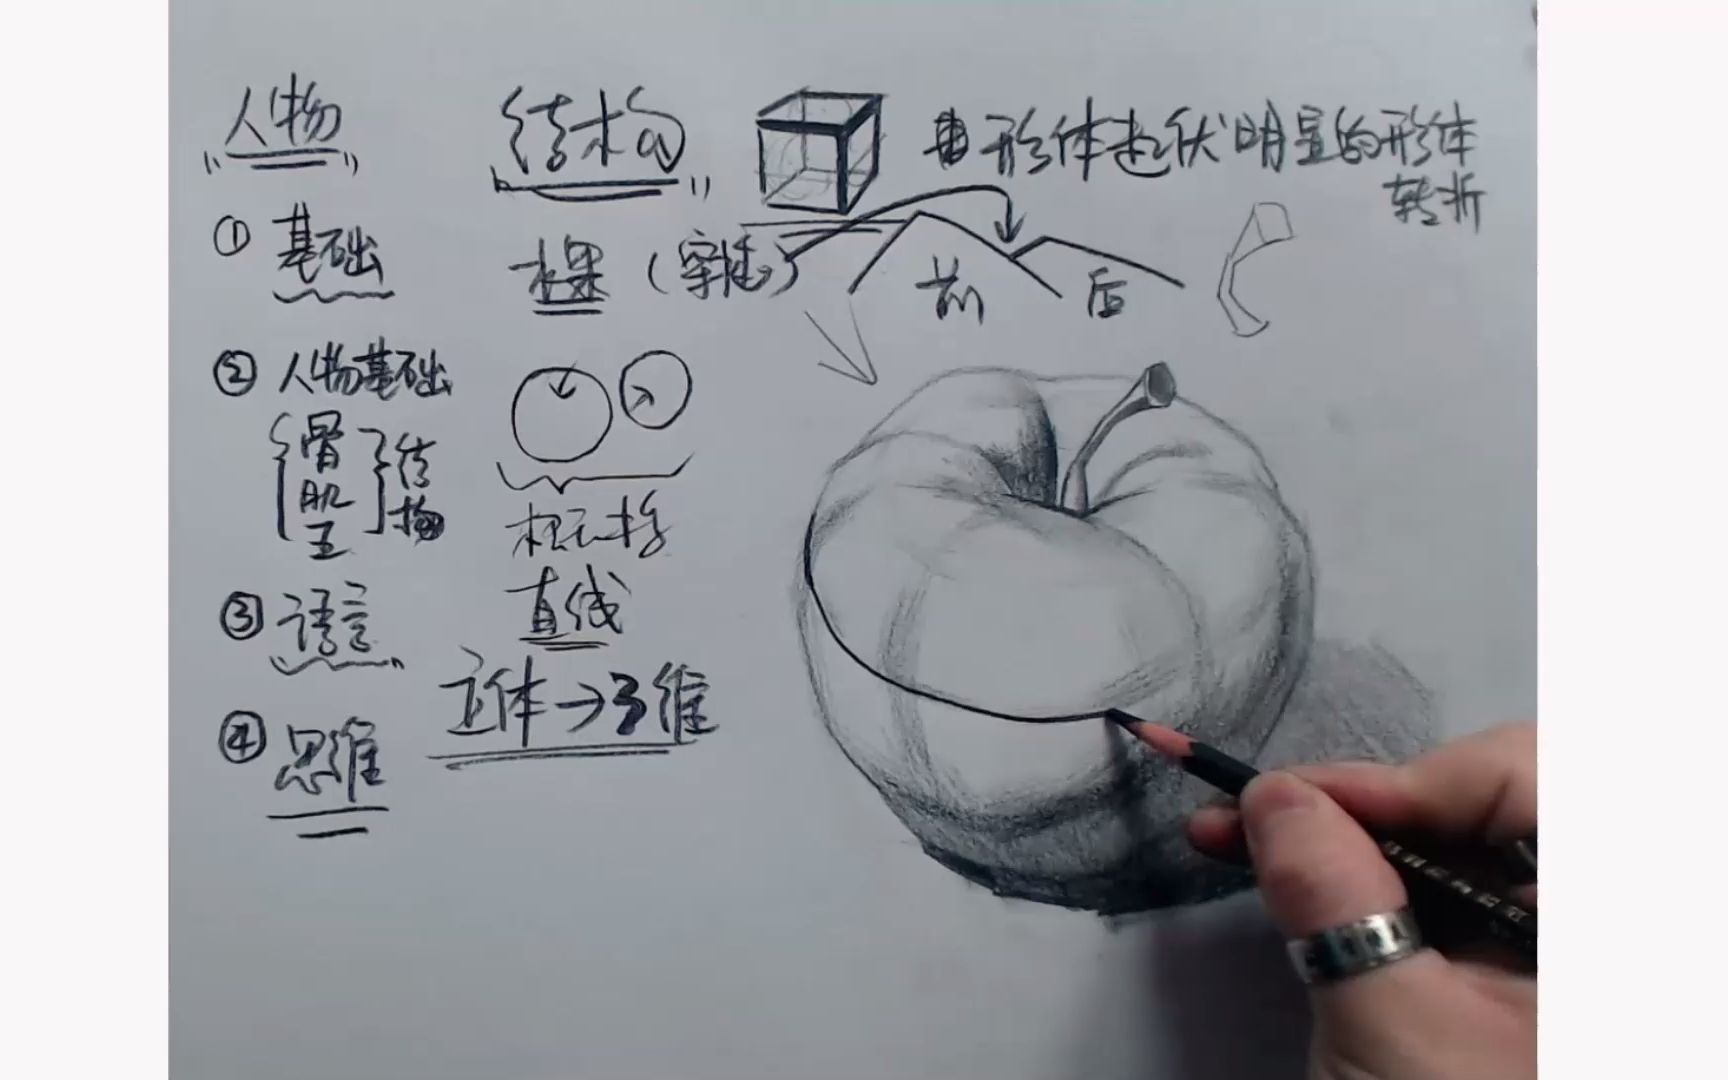 人物
① 基础
② 人物基础
骨
肌
五
结
构
③ 语言
④ 思维
结构
苹果（穿插）
直线
立体→3维
形体起伏明显的形体
转折
前
后